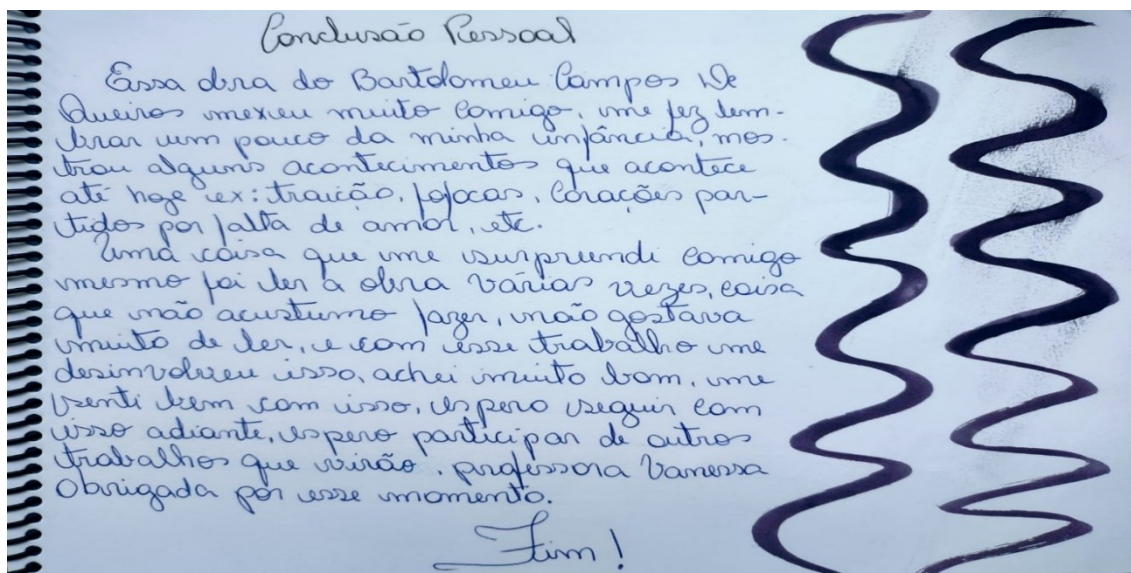 Conclusão Pessoal
Essa obra do Bartolomeu Campos De
Queiros mexeu muito comigo, me fez lem-
brar um pouco da minha infância, mos-
trou alguns acontecimentos que acontece
até hoje ex: traição, fofocas, corações par-
tidos por falta de amor, etc.
Uma coisa que me surpreendi comigo
mesmo foi ler a obra várias vezes, coisa
que não acustumo fazer, não gostava
muito de ler, e com esse trabalho me
desinvolveu isso, achei muito bom, me
senti bem com isso, espero seguir com
isso adiante, espero participar de outros
trabalhos que virão, professora Vanessa
Obrigada por esse momento.
Fim!